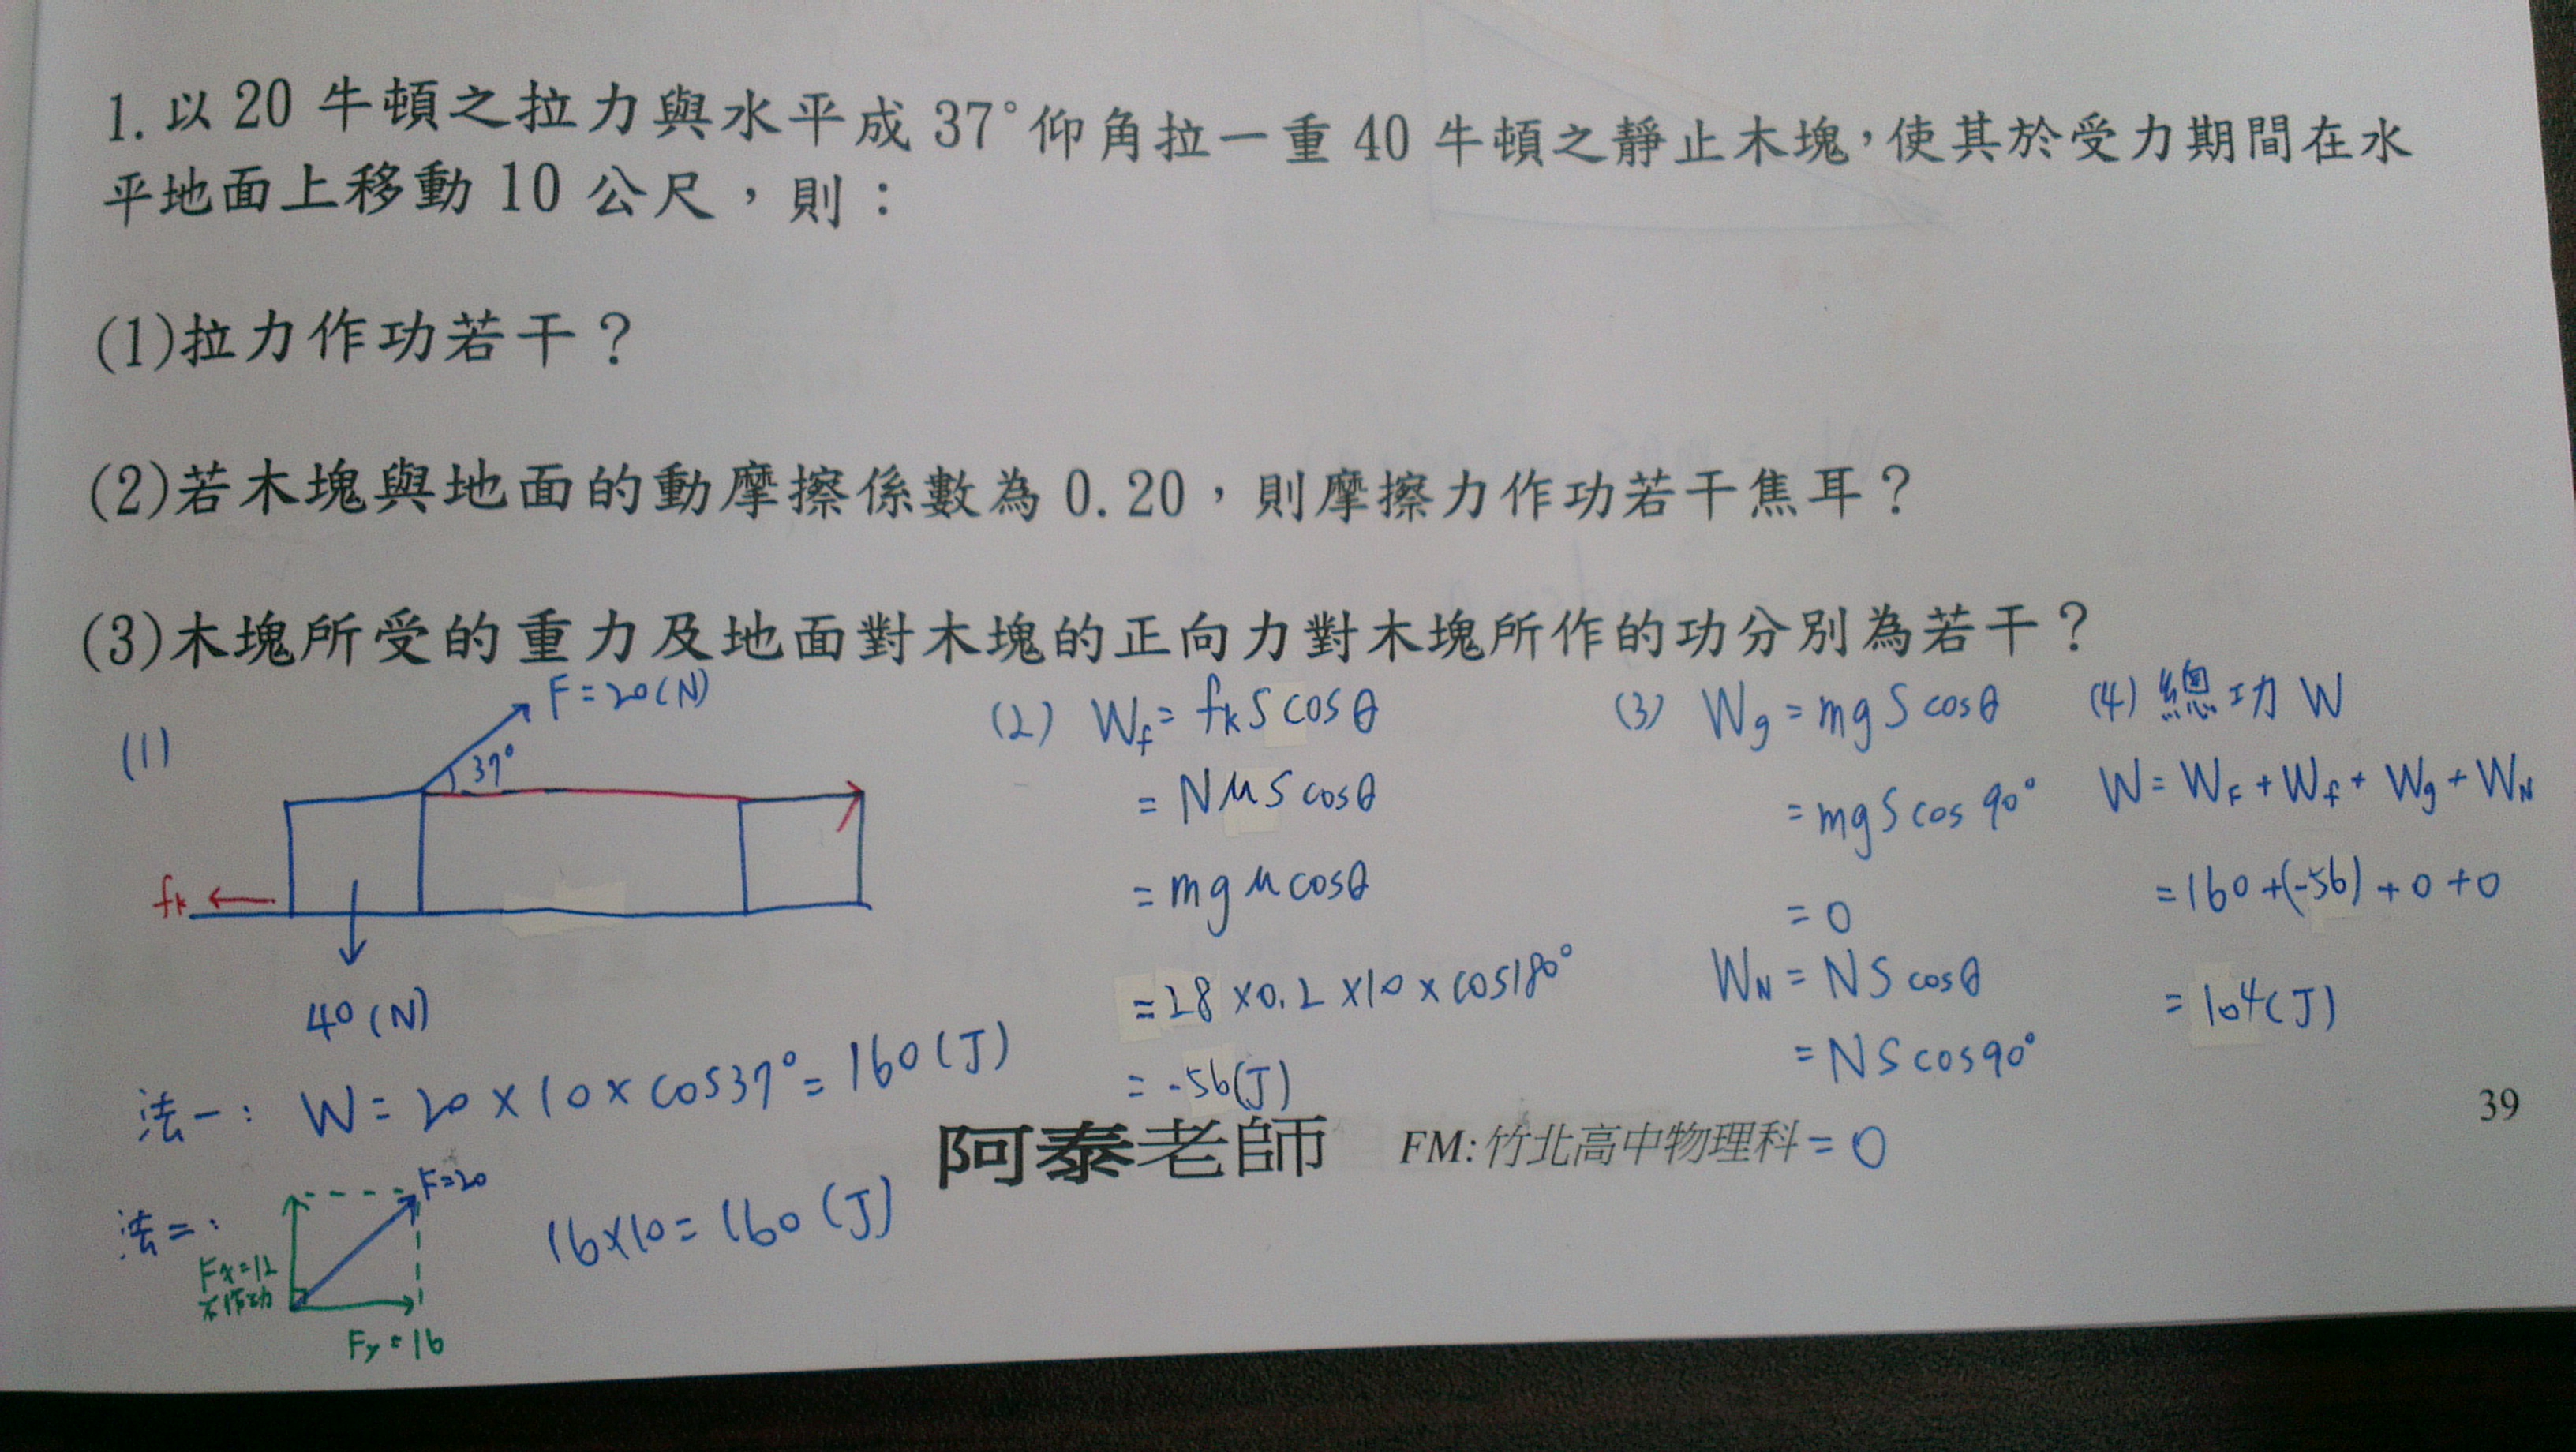 1.以20牛頓之拉力與水平成37°仰角拉一重40牛頓之靜止木塊，使其於受力期間在水
平地面上移動10公尺，則：
(1)拉力作功若干？
(2)若木塊與地面的動摩擦係數為0.20，則摩擦力作功若干焦耳？
(3)木塊所受的重力及地面對木塊的正向力對木塊所作的功分別為若干？
(1)
F=20(N)
37°
fk
40(N)
法一： W=20×10×cos37°=160(J)
法二：
F=20
Fx=12
不作功
Fy=16
16×10=160(J)
(2) Wf=fkScosθ
=NμScosθ
=mgμcosθ
=28×0.2×10×cos180°
=-56(J)
(3) Wg=mgScosθ
=mgScos90°
=0
WN=NScosθ
=NScos90°
=0
(4) 總功W
W=WF+Wf+Wg+WN
=160+(-56)+0+0
=104(J)
阿泰老師 FM:竹北高中物理科
39